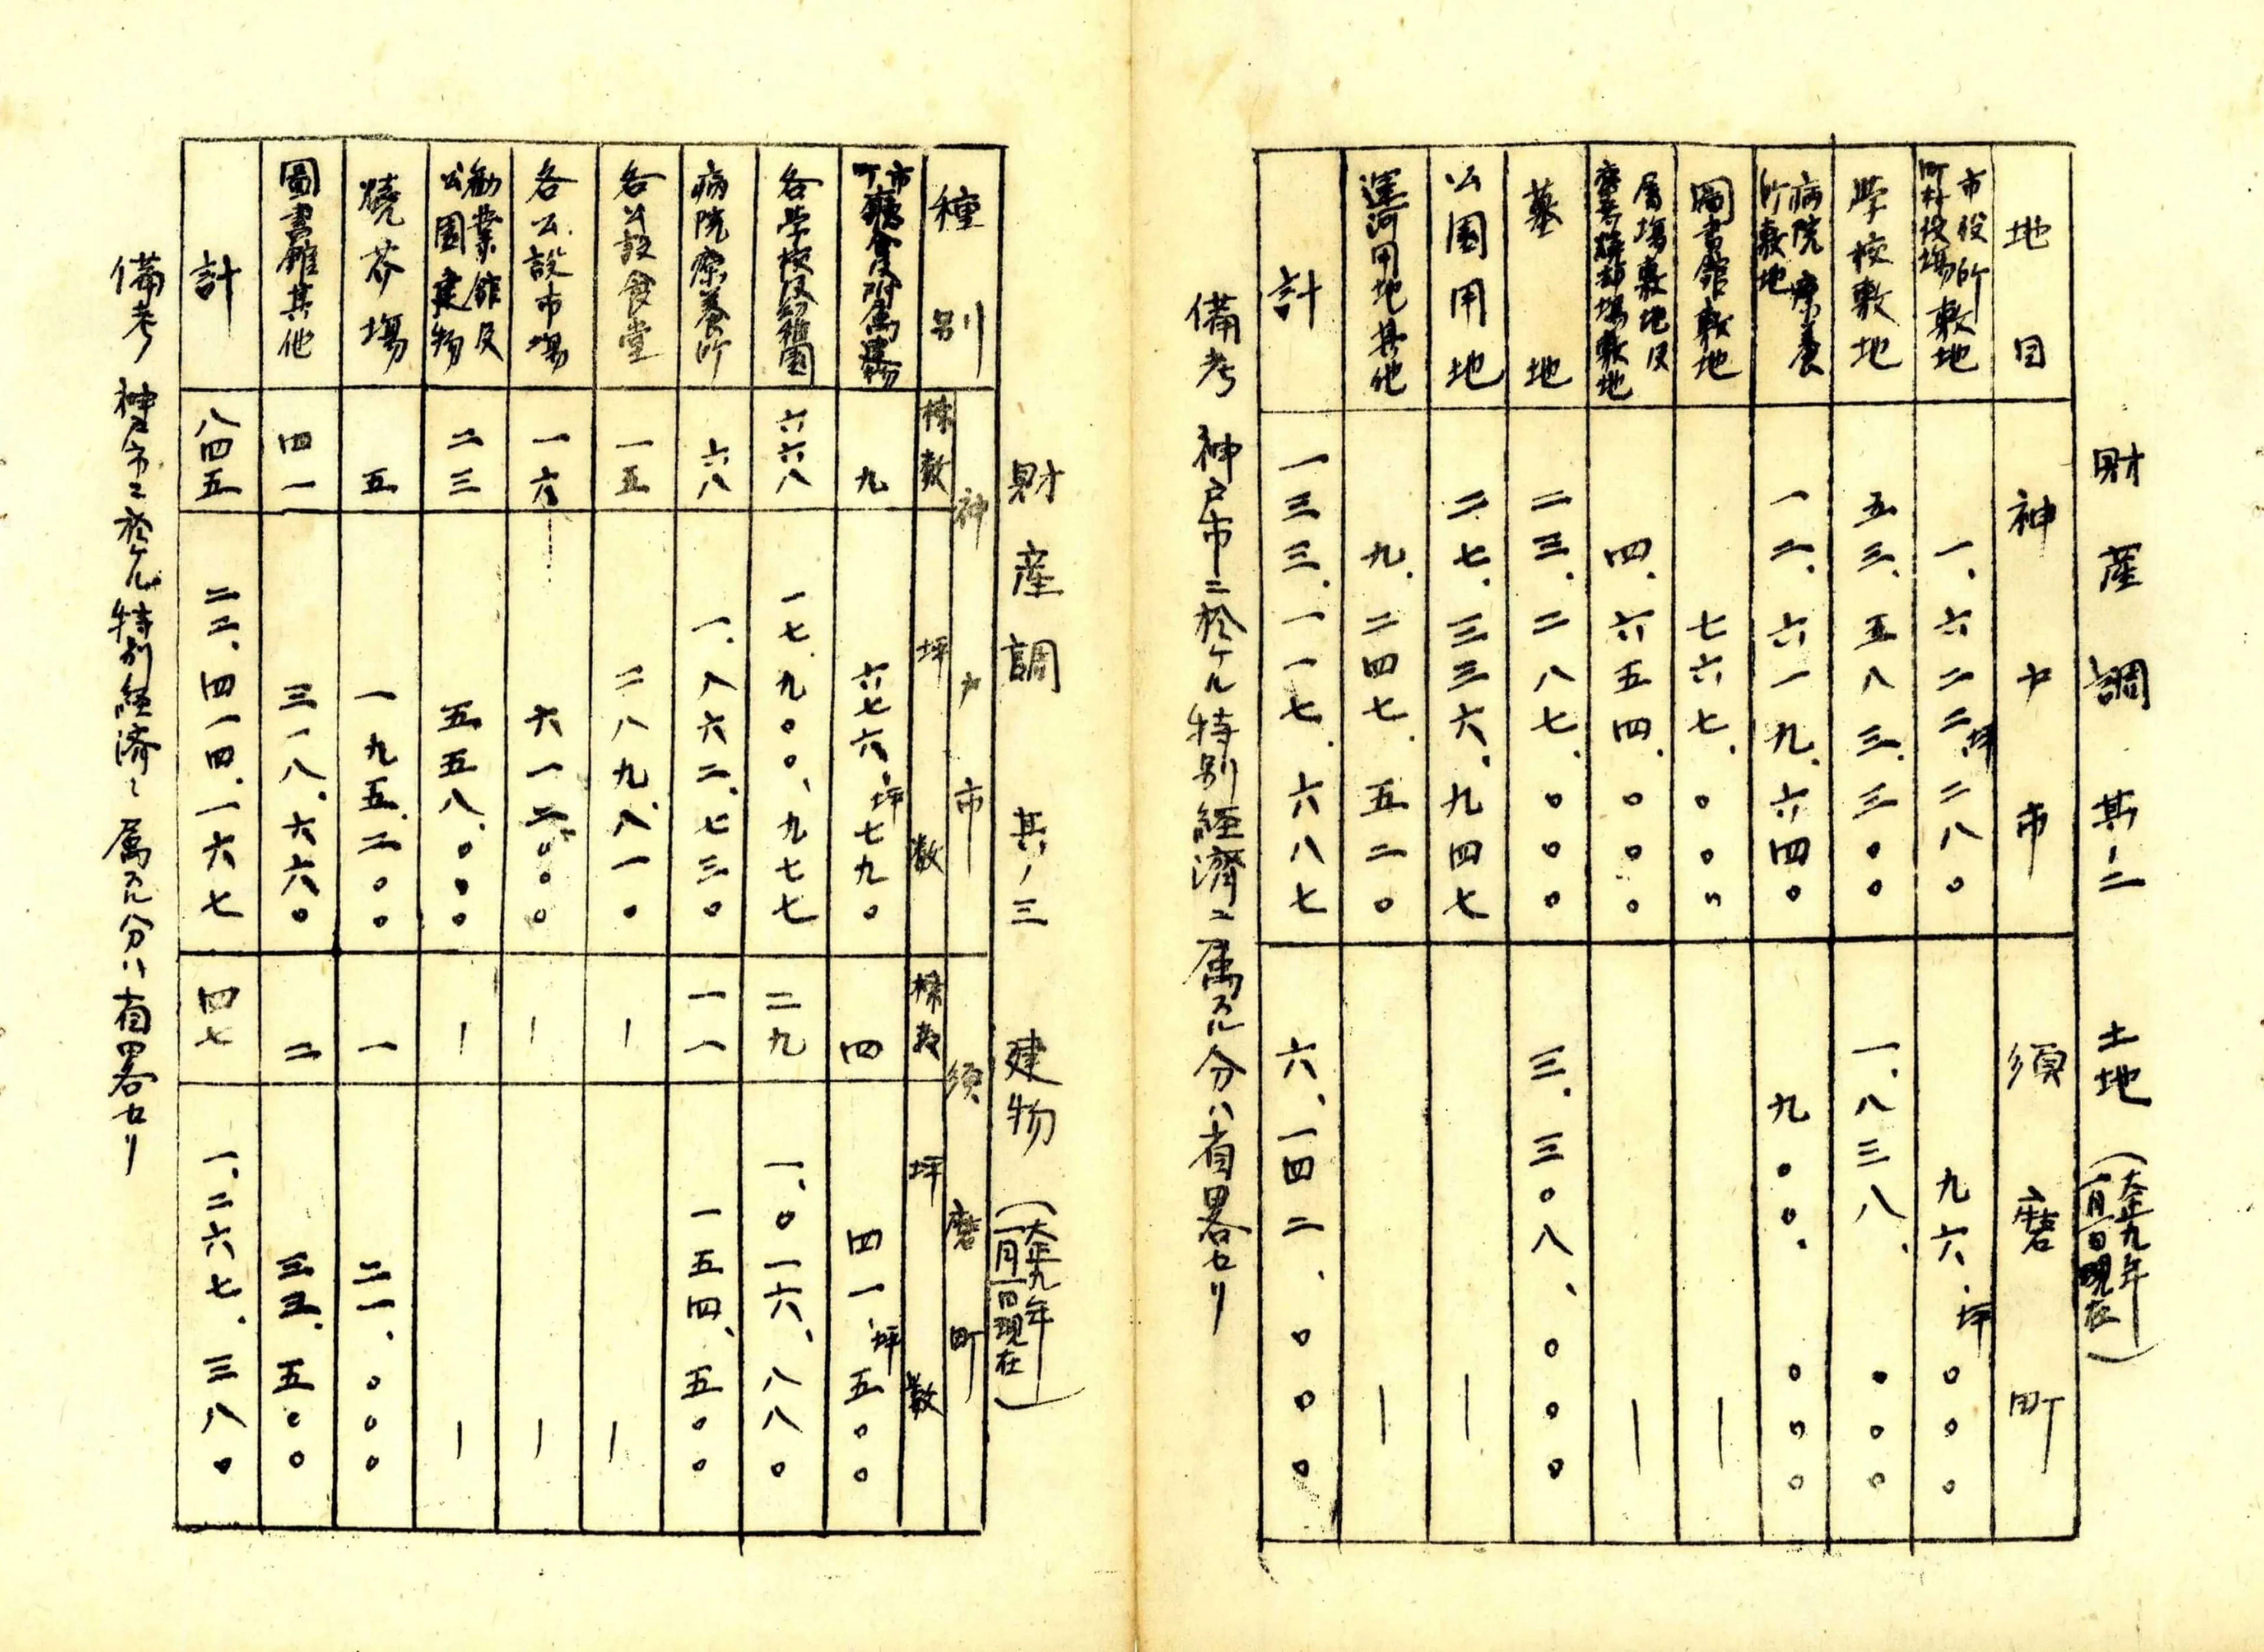 財産調 其ノ二 土地 (大正九年一月一日現在)
地目 神戸市 須磨町
市役所町村役場敷地 一、六二二坪二八〇 九六、坪〇〇〇
学校敷地 五三、五八三、三〇〇 一、八三八、〇〇〇
病院療養所敷地 一二、六一九、六四〇 九〇〇、〇〇〇
圖書館敷地 七六七、〇〇〇 ー
屠場敷地及塵芥焼却場敷地 四、六五四、〇〇〇 ー
墓地 二三、二八七、〇〇〇 三、三〇八、〇〇〇
公園用地 二七、三三六、九四七 ー
運河用地其他 九、二四七、五二〇 ー
計 一三三、一一七、六八七 六、一四二、〇〇〇
備考 神戸市ニ於ケル特別経済ニ属スル分ハ省畧セリ
財産調 其ノ三 建物 (大正九年一月一日現在)
種別 神戸市 須磨町
棟数 坪数 棟数 坪数
市町廳舎及附属建物 九 六七六、坪七九〇 四 四一、坪五〇〇
各学校及幼稚園 六六八 一七、九〇〇、九七七 二九 一、〇一六、八八〇
病院療養所 六八 一、八六二、七三〇 一一 一五四、五〇〇
各公設食堂 一五 二八九、八一〇 ー ー
各公設市場 一六 六一二、〇〇〇 ー ー
勧業館及公園建物 二三 五五八、〇〇〇 ー ー
焼芥場 五 一九五、二〇〇 一 二一、〇〇〇
圖書館其他 四一 三一八、六六〇 二 三三、五〇〇
計 八四五 二二、四一四、一六七 四七 一、二六七、三八〇
備考 神戸市ニ於ケル特別経済ニ属スル分ハ省畧セリ